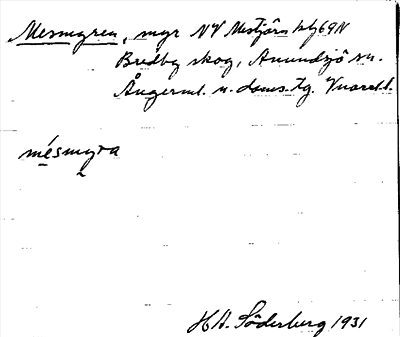 Mesmyren, myr NV Mestjärn kbl 69N
Bredby skog, Anundsjö sn.
Ångerml. n. doms. tg.
mésmyra
H A. Söderberg 1931